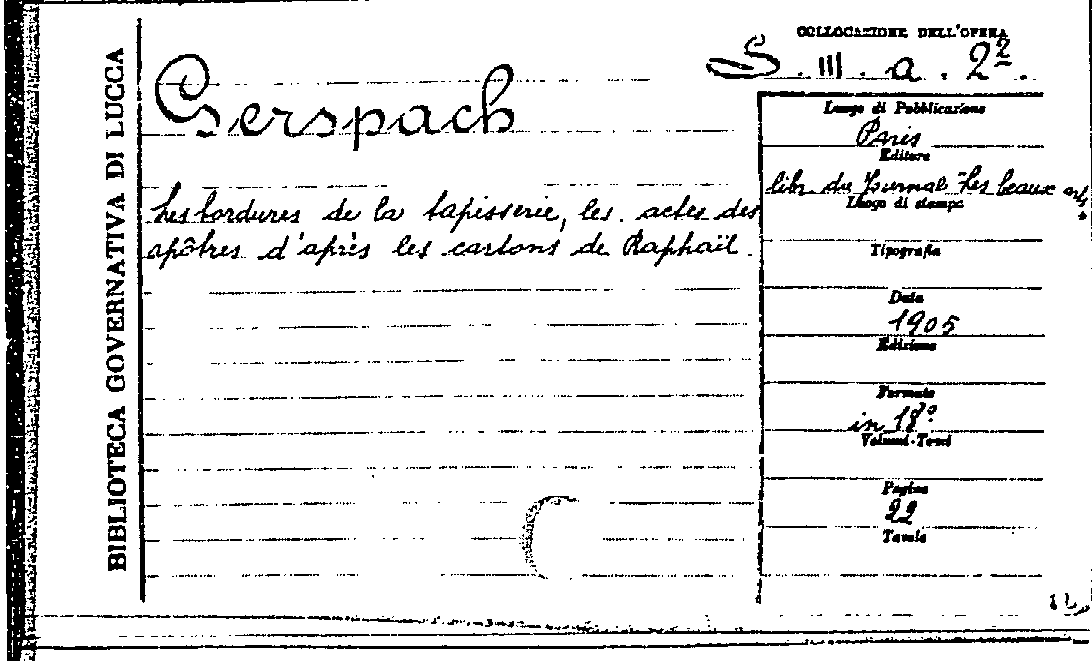 BIBLIOTECA GOVERNATIVA DI LUCCA
COLLOCAZIONE DELL'OPERA
S. III. a. 2²
Gerspach
Les bordures de la tapisserie, les actes des
apôtres d'après les cartons de Raphaël.
Luogo di Pubblicazione
Paris
Editore
libr. du Journal Les beaux arts
Luogo di stampa
Tipografia
Data
1905
Edizione
Formato
in 18°
Volumi-Tomi
Pagine
22
Tavole